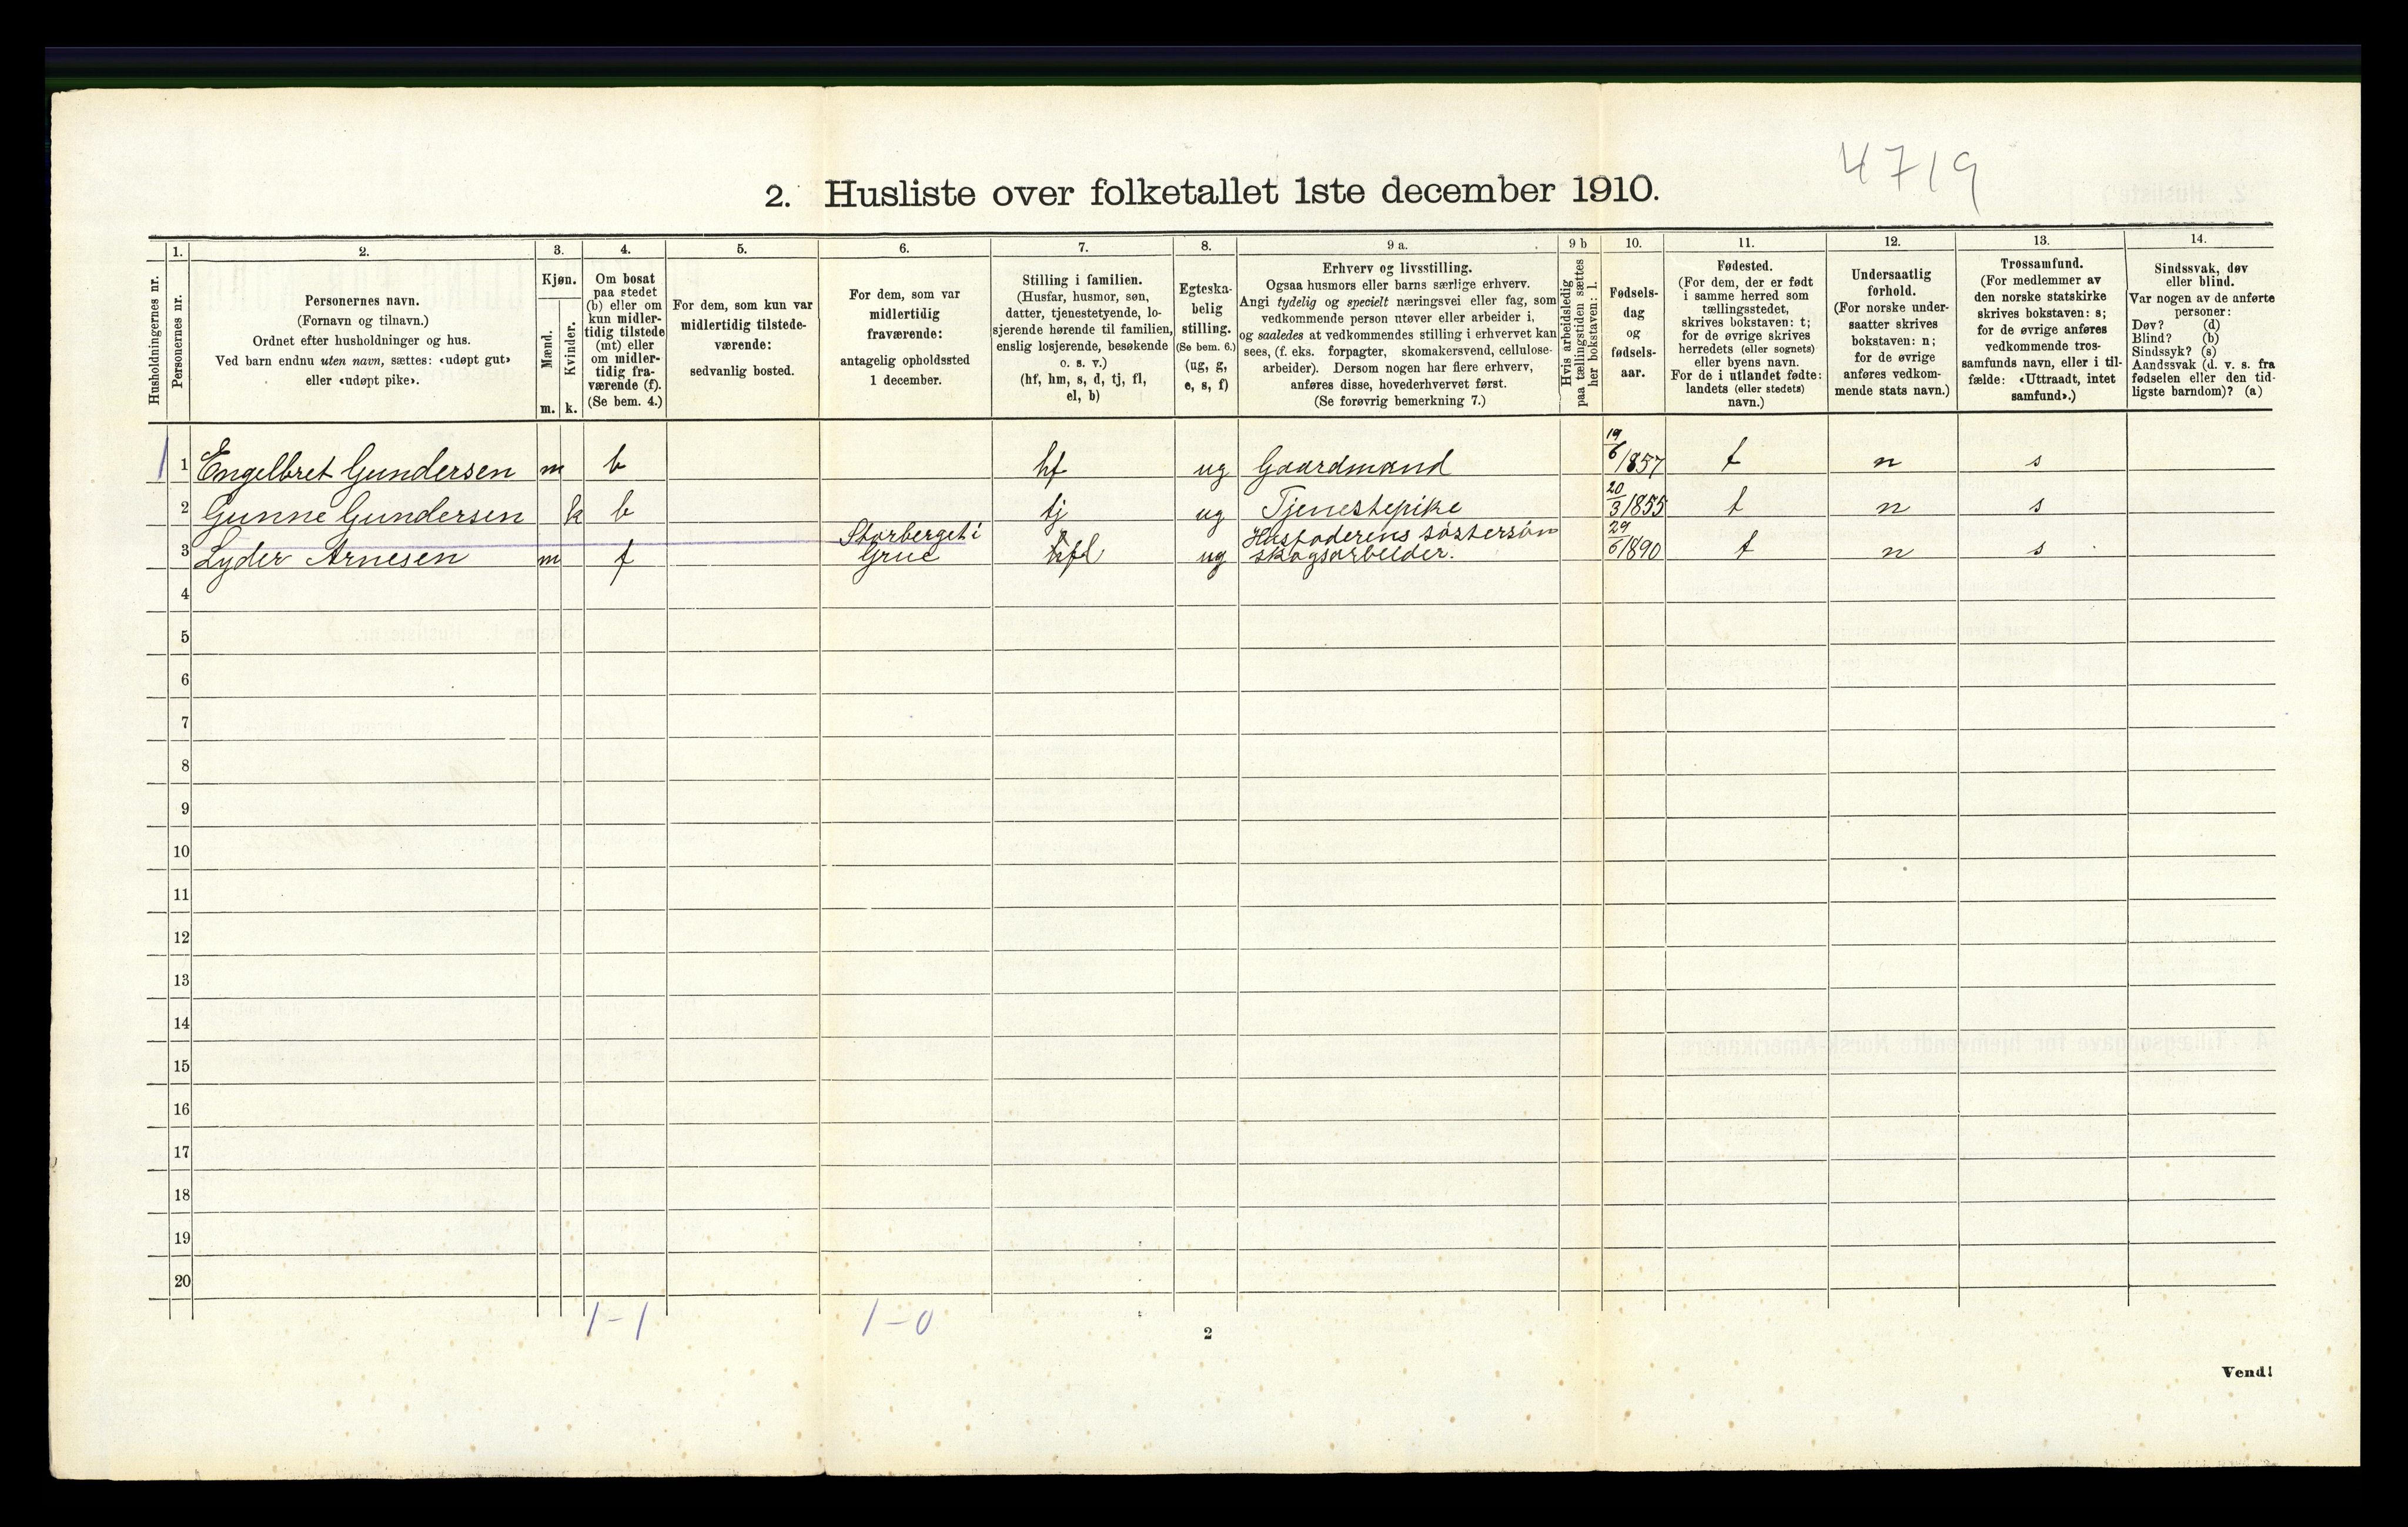 4719
2. Husliste over folketallet 1ste december 1910.
Husholdningernes nr.
1.
Personernes nr.
2.
Personernes navn.
(Fornavn og tilnavn.)
Ordnet efter husholdninger og hus.
Ved barn endnu uten navn, sættes: «udøpt gut»
eller «udøpt pike».
3.
Kjøn.
Mænd.
Kvinder.
m. k.
4.
Om bosat
paa stedet
(b) eller om
kun midler-
tidig tilstede
(mt) eller
om midler-
tidig fra-
værende (f).
(Se bem. 4.)
5.
For dem, som kun var
midlertidig tilstede-
værende:
sedvanlig bosted.
6.
For dem, som var
midlertidig
fraværende:
antagelig opholdssted
1 december.
7.
Stilling i familien.
(Husfar, husmor, søn,
datter, tjenestetyende, lo-
sjerende hørende til familien,
enslig losjerende, besøkende
o. s. v.)
(hf, hm, s, d, tj, fl,
el, b)
8.
Egteska-
belig
stilling.
(Se bem. 6.)
(ug, g,
e, s, f)
9 a.
Erhverv og livsstilling.
Ogsaa husmors eller barns særlige erhverv.
Angi tydelig og specielt næringsvei eller fag, som
vedkommende person utøver eller arbeider i,
og saaledes at vedkommendes stilling i erhvervet kan
sees, (f. eks. forpagter, skomakersvend, cellulose-
arbeider). Dersom nogen har flere erhverv,
anføres disse, hovederhvervet først.
(Se forøvrig bemerkning 7.)
9 b
Hvis arbeidsledig
paa tællingstiden sættes
her bokstaven: l.
10.
Fødsels-
dag
og
fødsels-
aar.
11.
Fødested.
(For dem, der er født
i samme herred som
tællingsstedet,
skrives bokstaven: t;
for de øvrige skrives
herredets (eller sognets)
eller byens navn.
For de i utlandet fødte:
landets (eller stedets)
navn.)
12.
Undersaatlig
forhold.
(For norske under-
saatter skrives
bokstaven: n;
for de øvrige
anføres vedkom-
mende stats navn.)
13.
Trossamfund.
(For medlemmer av
den norske statskirke
skrives bokstaven: s;
for de øvrige anføres
vedkommende tros-
samfunds navn, eller i til-
fælde: «Uttraadt, intet
samfund».)
14.
Sindssvak, døv
eller blind.
Var nogen av de anførte
personer:
Døv? (d)
Blind? (b)
Sindssyk? (s)
Aandssvak (d. v. s. fra
fødselen eller den tid-
ligste barndom)? (a)
1 1 Engelbret Gundersen m b hf ug Gaardmand 19/6 1857 t n s
2 Gunne Gundersen k b tj ug Tjenestepike 20/3 1855 t n s
3 Lyder Arnesen m f Storberget i Grue hfl ug Husfaderens søstersøn skogsarbeider. 29/6 1890 t n s
4
5
6
7
8
9
10
11
12
13
14
15
16
17
18
19
20
1-1 1-0
2
Vend!